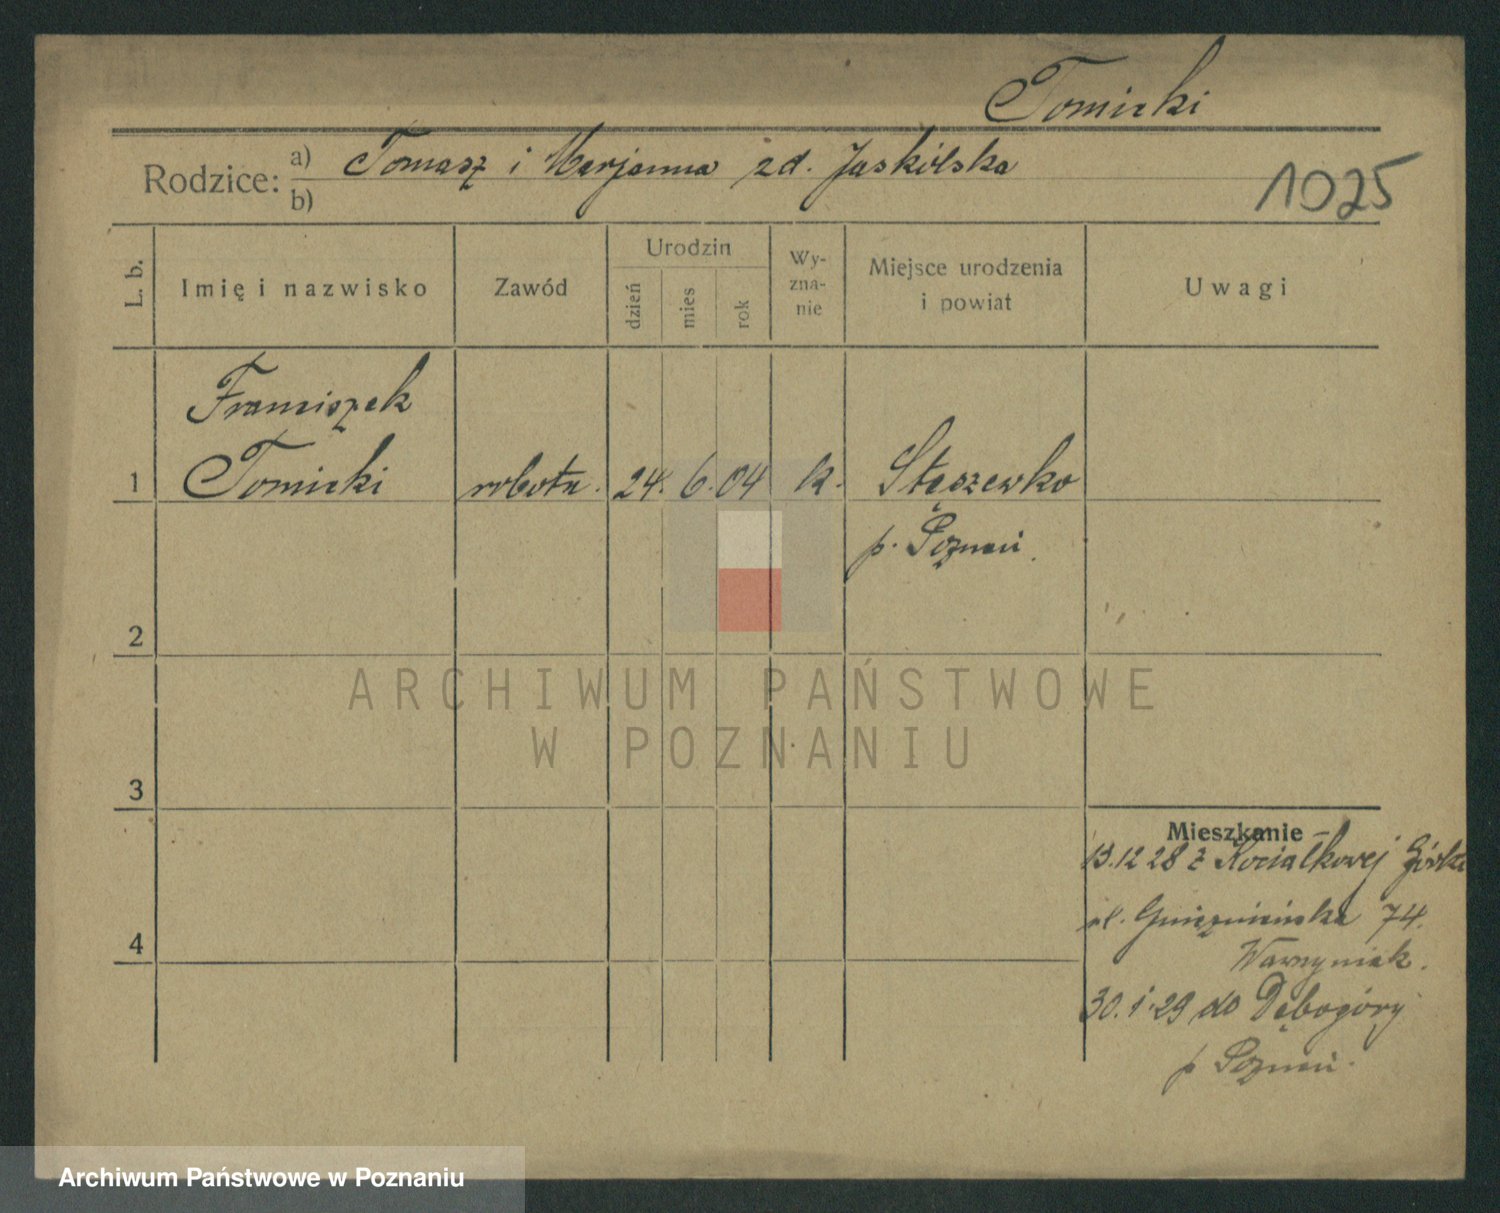 Tomicki
Rodzice: a) Tomasz i Marjanna zd. Jaskólska
b)
1025
L. b.
Imię i nazwisko
Zawód
Urodzin
dzień
mies
rok
Wy-
zna-
nie
Miejsce urodzenia
i powiat
Uwagi
Franciszek
1 Tomicki robotn. 24. 6. 04 k. Stęszewko
p. Poznań.
2
3
4
Mieszkanie
13.12 28 z Kociałkowej Górki
ul. Gnieźnieńska 74.
Wawrzyniak.
30.1.29 do Dębogóry
p Poznań.
ARCHIWUM PAŃSTWOWE
W POZNANIU
Archiwum Państwowe w Poznaniu